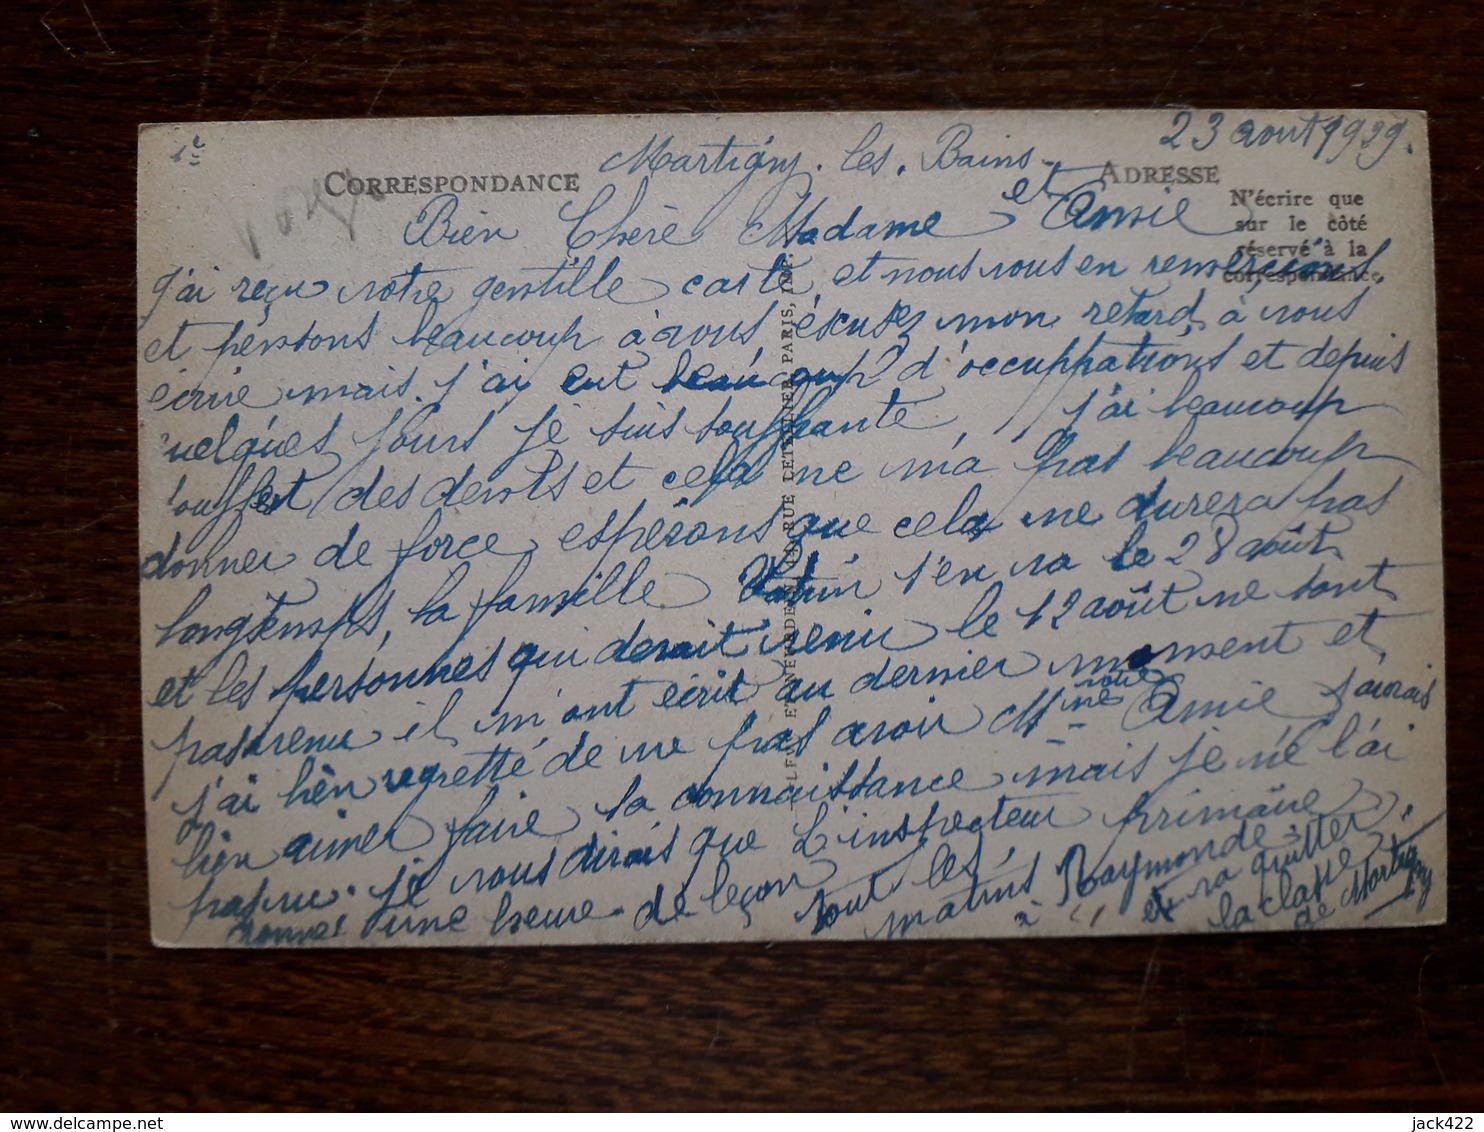 1e
23 août 1929.
Martigny-les-Bains-
CORRESPONDANCE
ADRESSE
N'écrire que
sur le côté
réservé à la
correspondance
Bien Chère Madame et Amie
J'ai reçu votre gentille carte, et nous vous en remercions
et pensons beaucoup à vous, éxcusez mon retard à vous
écrire mais j'ai eut beaucoup d'occuppations et depuis
quelques jours je suis souffrante j'ai beaucoup
souffert des dents et cela ne m'a pas beaucoup
donner de force, espérons que cela ne durera pas
longtemps, la famille s'en va le 28 août
et les personnes qui devait venir le 12 août ne sont
pas venu il m'ont écrit au dernier moment et
j'ai bien regretté de ne pas avoir Mme votre Amie j'aurais
bien aimer faire la connaissance mais je ne l'ai
pas vu. je vous dirais que L'inspecteur primaire
donne une heure de leçon tout les matins à Raymonde
et va quitter
la classe
de Martigny
RUE LETELLIER, PARIS, IMP.
jack422